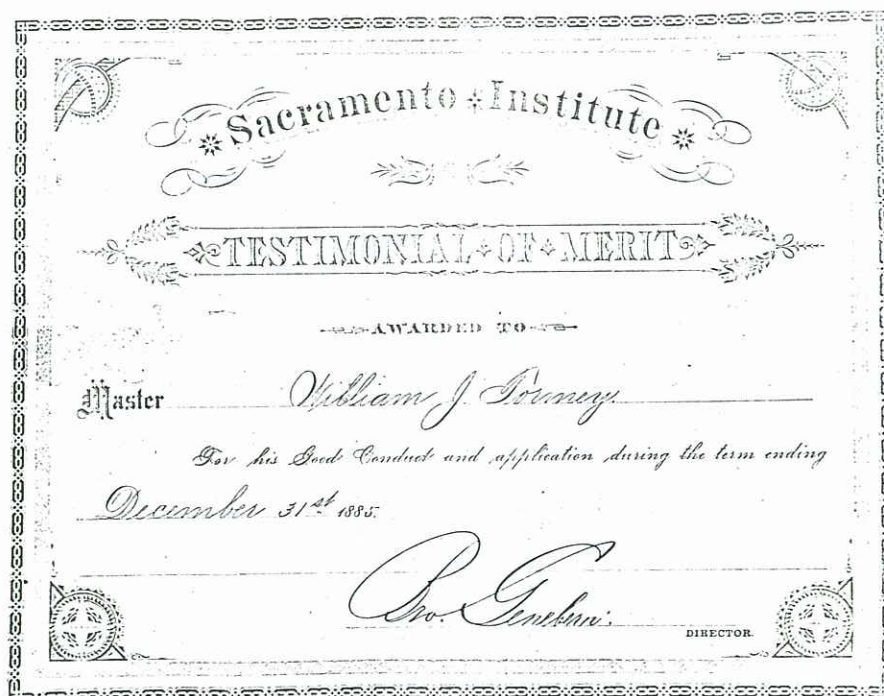 Sacramento Institute
TESTIMONIAL OF MERIT
AWARDED TO
Master William J. Tormey
For his Good Conduct and application during the term ending
December 31st 1885.
Bro. Genebern.
DIRECTOR.